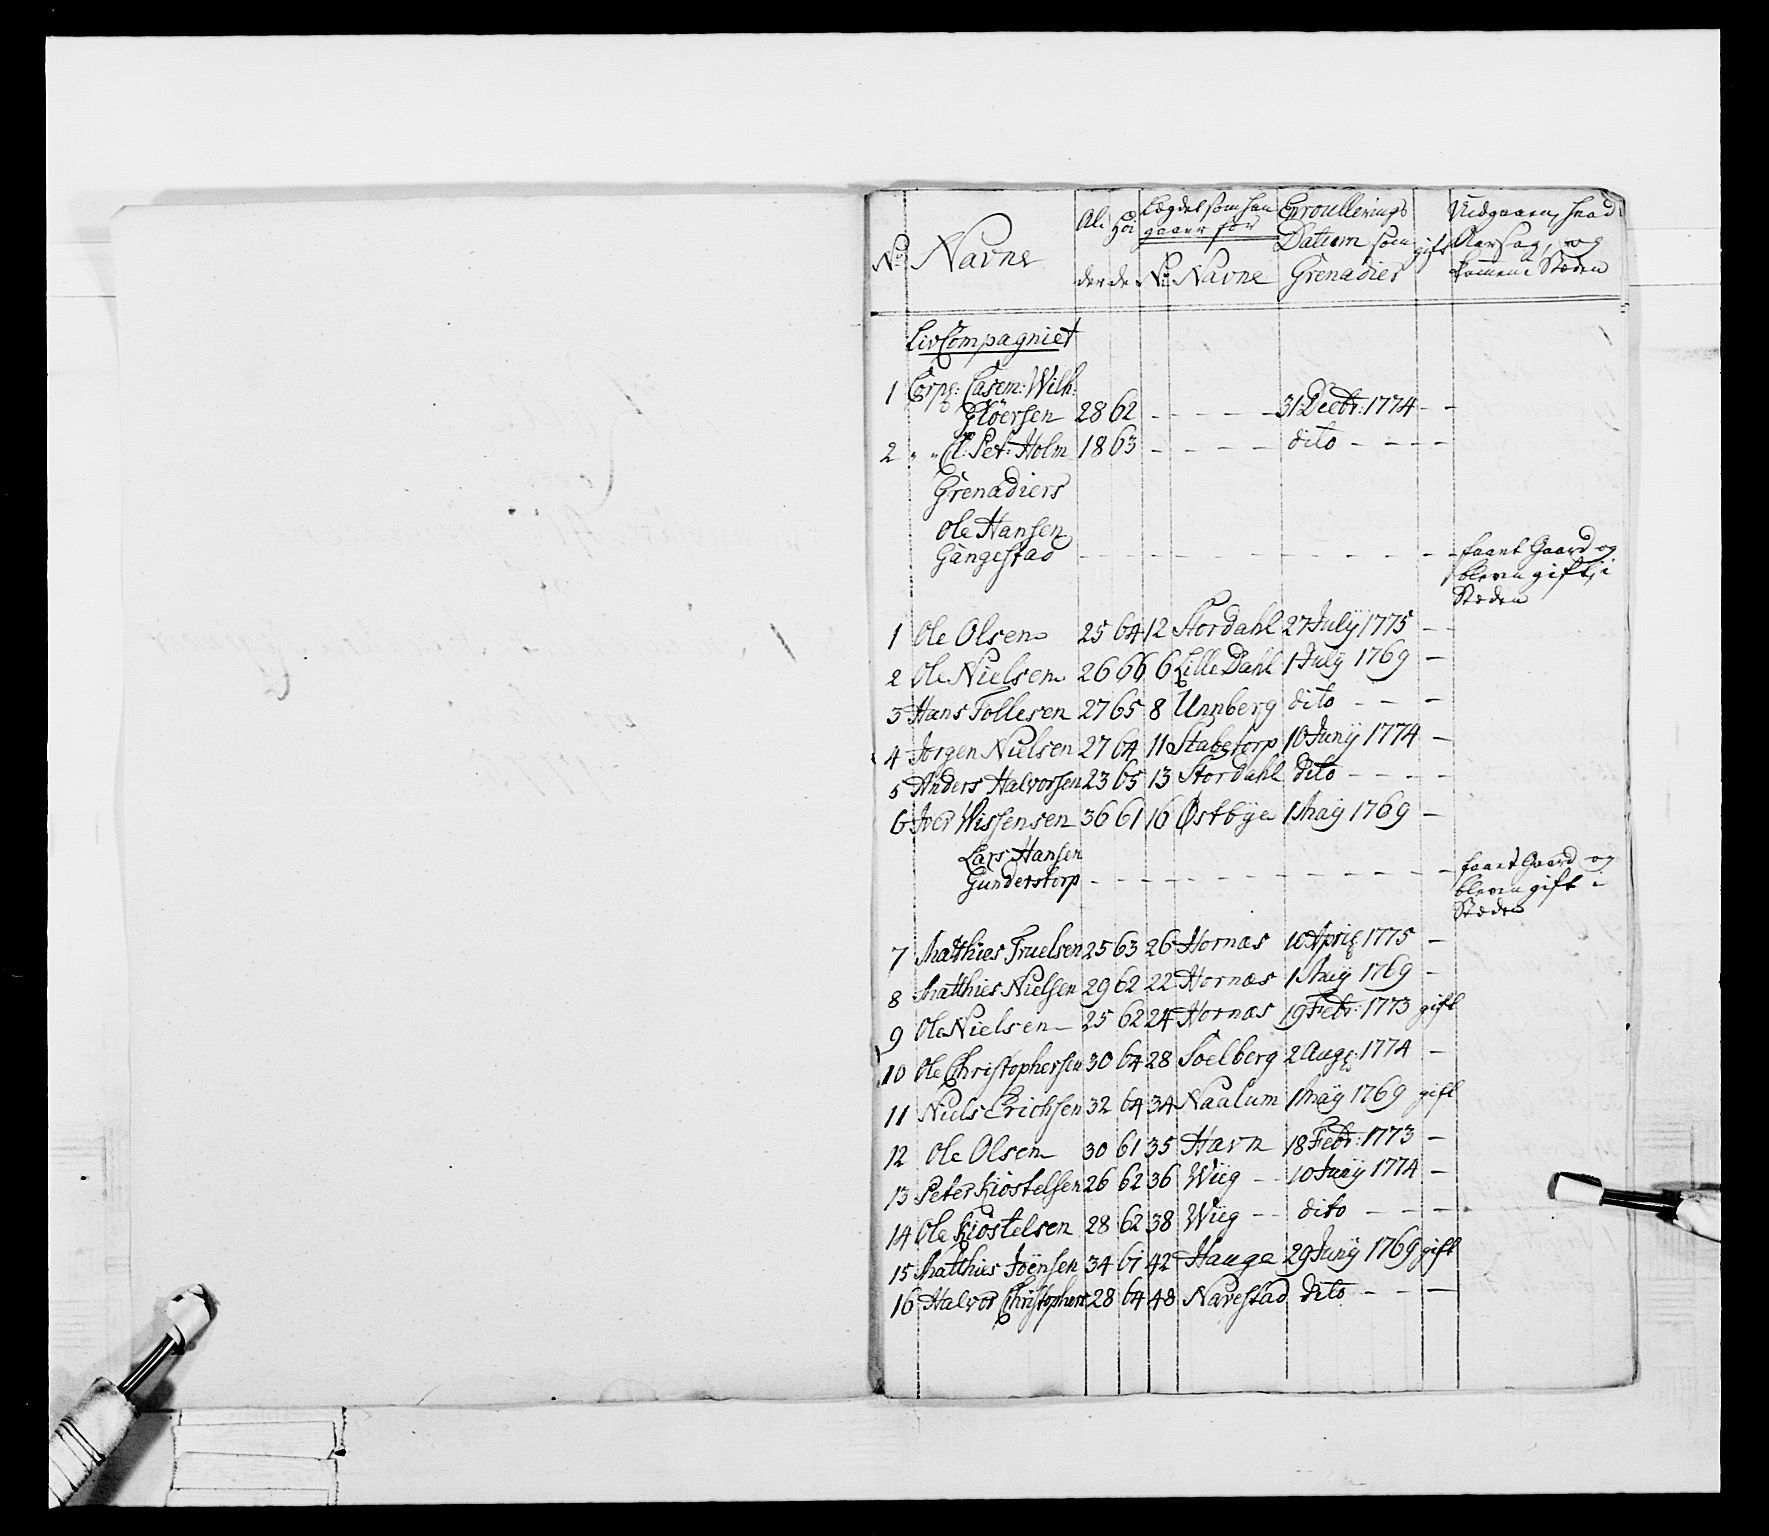 No Navne Al Höi Lægdet som han gaaer for Enroullerings Datum som Grenadier gift Uidgaaen, hvad Aarsag, og kommen i Stæden
der de No Navne
LivCompagniet
1 Corpr: Casem: Wilh:
Glöersen 28 62 - - - - - 31 Decbr: 1774 - -
2 " " Cl: Pet: Holm 18 63 - - - - dito - - - -
Grenadiers
Ole Hansen
Gangestad - - - - - - - - - - faaet Gaard og
bleven gift, i
Stæden
1 Ole Olsen 25 64 12 Stordahl 27 July 1775 - -
2 Ole Nielsen 26 66 6 Lille Dahl 1 July 1769 -
3 Hans Tollesen 27 65 8 Unnberg dito - - -
4 Jørgen Nielsen 27 64 11 Stabetorp 10 Juny 1774 -
5 Anders Halvorsen 23 65 13 Stordahl dito - - - -
6 Iver Nissensen 36 61 16 Østbye 1 May 1769 -
Lars Hansen
Gunderstorp - - - - - - - - - - faaet Gaard og
bleven gift i
Stæden
7 Matthies Truelsen 25 63 26 Hornæs 10 April 1775 -
8 Matthies Nielsen 29 62 22 Hornæs 1 May 1769 -
9 Ole Nielsen - 25 62 24 Hornæs 19 Febr: 1773 gift
10 Ole Christophersen 30 64 28 Soelberg 2 Aug: 1774 -
11 Niels Erichsen 32 64 34 Naalum 1 May 1769 gift
12 Ole Olsen 30 61 35 Havn 18 Febr: 1773 -
13 Peter Kiostelsen 26 62 36 Wiig - - 10 Juny 1774 -
14 Ole Kiostelsen 28 62 38 Wiig - - dito - - -
15 Matthies Joensen 34 61 42 Hauge 29 Juny 1769 gift
16 Halvor Christophers 28 64 48 Navestad dito - - -